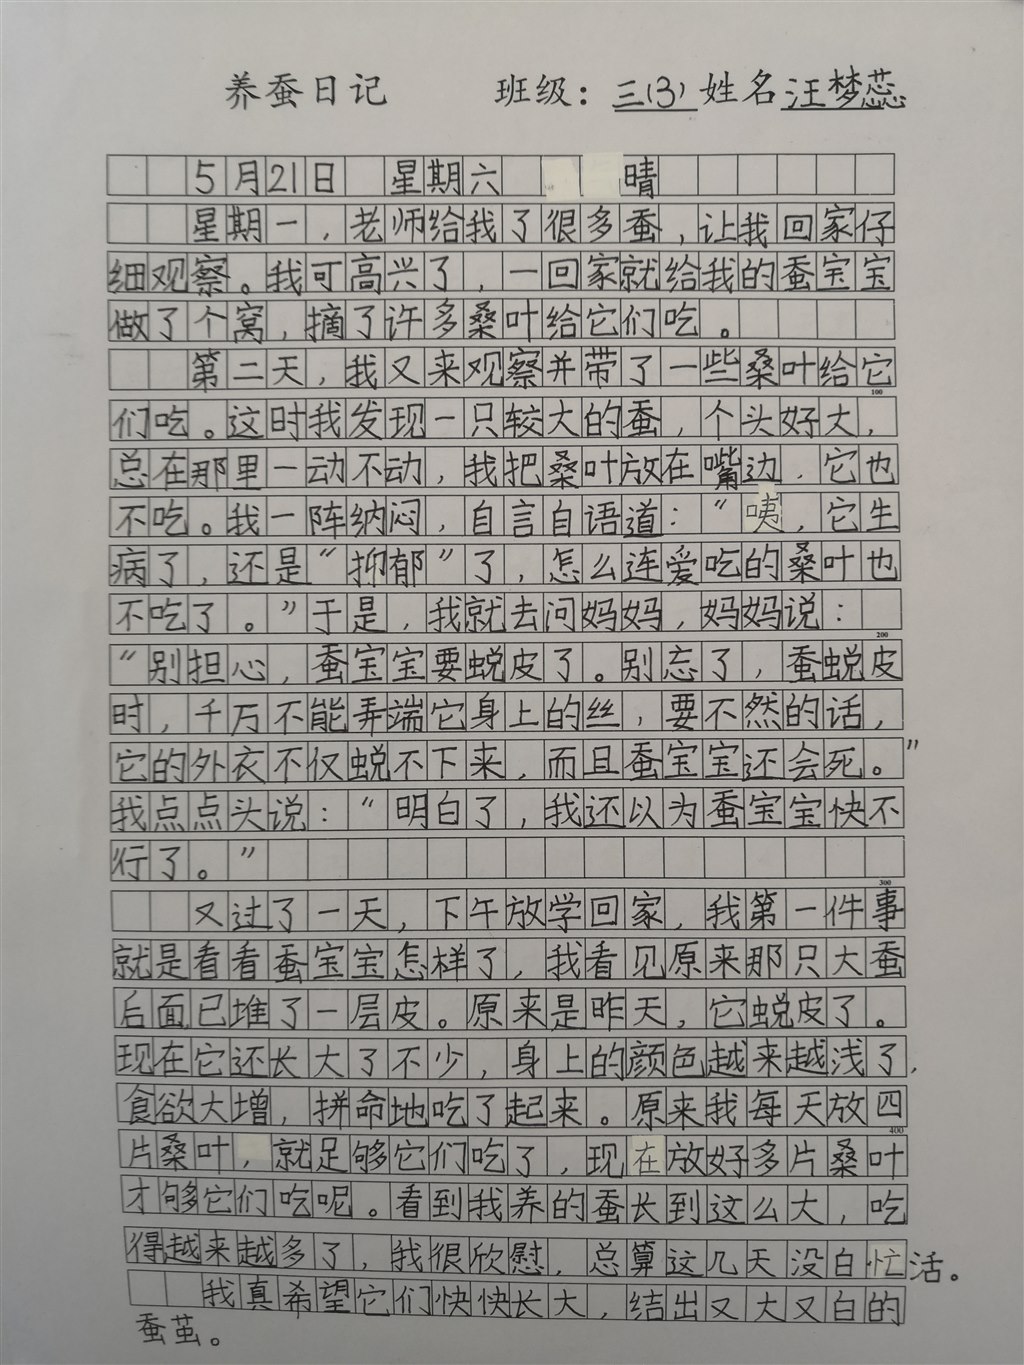 养蚕日记 班级：三(3) 姓名汪梦蕊
5月21日 星期六 晴
星期一，老师给我了很多蚕，让我回家仔
细观察。我可高兴了，一回家就给我的蚕宝宝
做了个窝，摘了许多桑叶给它们吃。
第二天，我又来观察并带了一些桑叶给它
100
们吃。这时我发现一只较大的蚕，个头好大，
总在那里一动不动，我把桑叶放在嘴边，它也
不吃。我一阵纳闷，自言自语道：“咦，它生
病了，还是“抑郁”了，怎么连爱吃的桑叶也
不吃了。”于是，我就去问妈妈，妈妈说：
200
“别担心，蚕宝宝要蜕皮了。别忘了，蚕蜕皮
时，千万不能弄端它身上的丝，要不然的话，
它的外衣不仅蜕不下来，而且蚕宝宝还会死。”
我点点头说：“明白了，我还以为蚕宝宝快不
行了。”
300
又过了一天，下午放学回家，我第一件事
就是看看蚕宝宝怎样了，我看见原来那只大蚕
后面已堆了一层皮。原来是昨天，它蜕皮了。
现在它还长大了不少，身上的颜色越来越浅了，
食欲大增，拼命地吃了起来。原来我每天放四
400
片桑叶，就足够它们吃了，现在放好多片桑叶
才够它们吃呢。看到我养的蚕长到这么大，吃
得越来越多了，我很欣慰，总算这几天没白忙活。
我真希望它们快快长大，结出又大又白的
蚕茧。